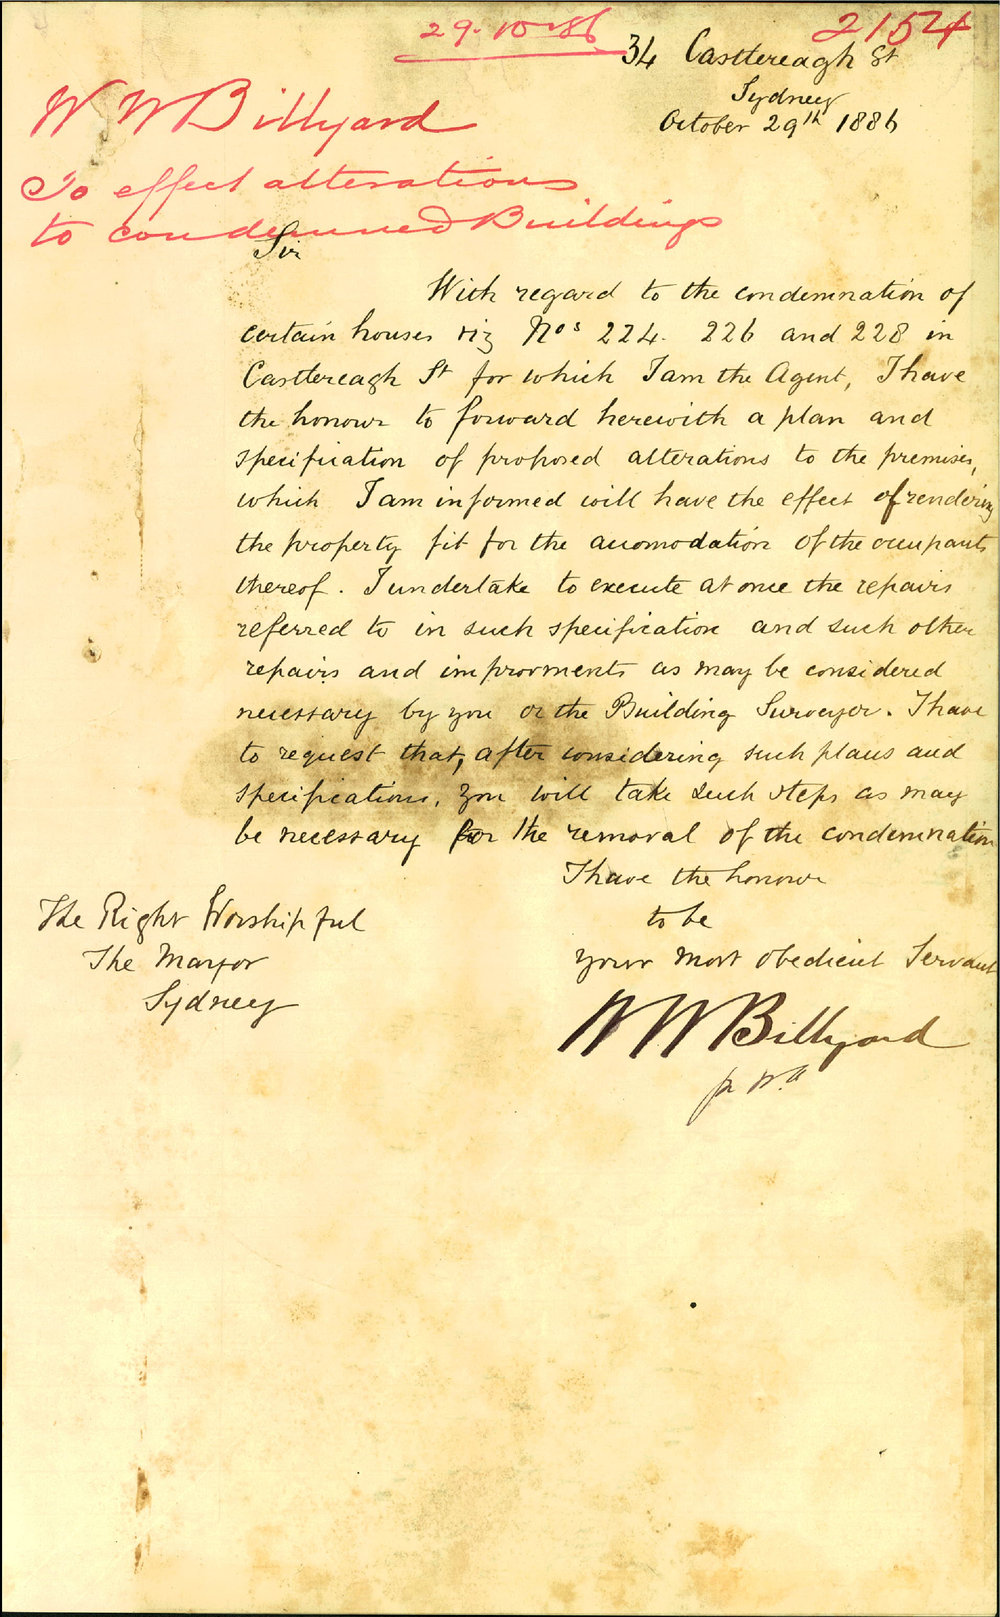 29.10.86
2154
34 Castlereagh St
Sydney
October 29th 1886
W W Billyard
To effect alterations
to condemned Buildings
Sir
With regard to the condemnation of
certain houses viz Nos 224. 226 and 228 in
Castlereagh St for which I am the Agent, I have
the honour to forward herewith a plan and
specification of proposed alterations to the premises,
which I am informed will have the effect of rendering
the property fit for the accomodation of the occupants
thereof. I undertake to execute at once the repairs
referred to in such specification and such other
repairs and improvments as may be considered
necessary by you or the Building Surveyor. I have
to request that, after considering such plans and
specifications, you will take such steps as may
be necessary for the removal of the condemnation
I have the honour
to be
your most obedient Servant
W W Billyard
The Right Worshipful
The Mayor
Sydney